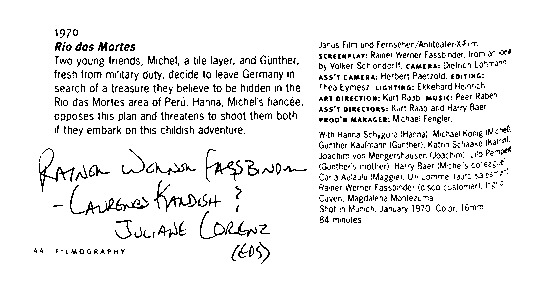 1970
Rio das Mortes
Two young friends, Michel, a tile layer, and Günther,
fresh from military duty, decide to leave Germany in
search of a treasure they believe to be hidden in the
Rio das Mortes area of Peru. Hanna, Michel's fiancée,
opposes this plan and threatens to shoot them both
if they embark on this childish adventure.
RAINER WERNER FASSBINDER
- LAURENCE KARDISH ?
JULIANE LORENZ
(EDS)
44 FILMOGRAPHY
Janus Film und Fernsehen/Antiteater-X-Film.
SCREENPLAY: Rainer Werner Fassbinder, from an idea
by Volker Schlöndorff. CAMERA: Dietrich Lohmann.
ASS'T CAMERA: Herbert Paetzold. EDITING:
Thea Eymèsz. LIGHTING: Ekkehard Heinrich.
ART DIRECTION: Kurt Raab. MUSIC: Peer Raben.
ASS'T DIRECTORS: Kurt Raab and Harry Baer.
PROD'N MANAGER: Michael Fengler.
With Hanna Schygulla (Hanna), Michael König (Michel),
Günther Kaufmann (Günther), Katrin Schaake (Katrin),
Joachim von Mengershausen (Joachim), Lilo Pempeit
(Günther's mother), Harry Baer (Michel's colleague),
Carla Aulaulu (Maggie), Ulli Lommel (auto salesman),
Rainer Werner Fassbinder (disco customer), Ingrid
Caven, Magdalena Montezuma.
Shot in Munich, January 1970. Color, 16mm.
84 minutes.